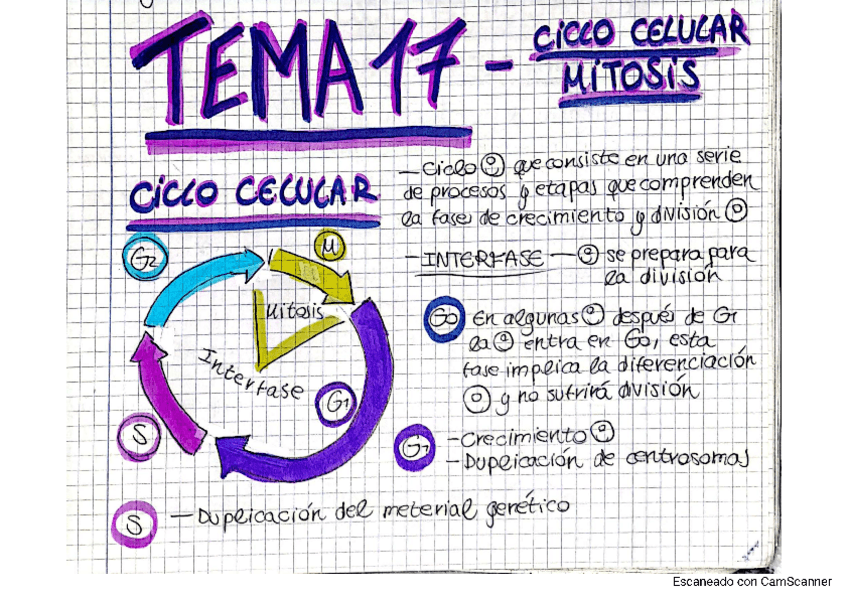 TEMA 17 - CICLO CELULAR
MITOSIS
CICLO CELULAR
- Ciclo que consiste en una serie
de procesos y etapas que comprenden
la fases de crecimiento y división
- INTERFASE - se prepara para
la división
G2
M
Mitosis
Interfase
G1
S
G0 En algunas después de G1
la entra en G0, esta
fase implica la diferenciación
y no sufrirá división
G1 - Crecimiento
- Duplicación de centrosomas
S - Duplicación del meterial genético
Escaneado con CamScanner